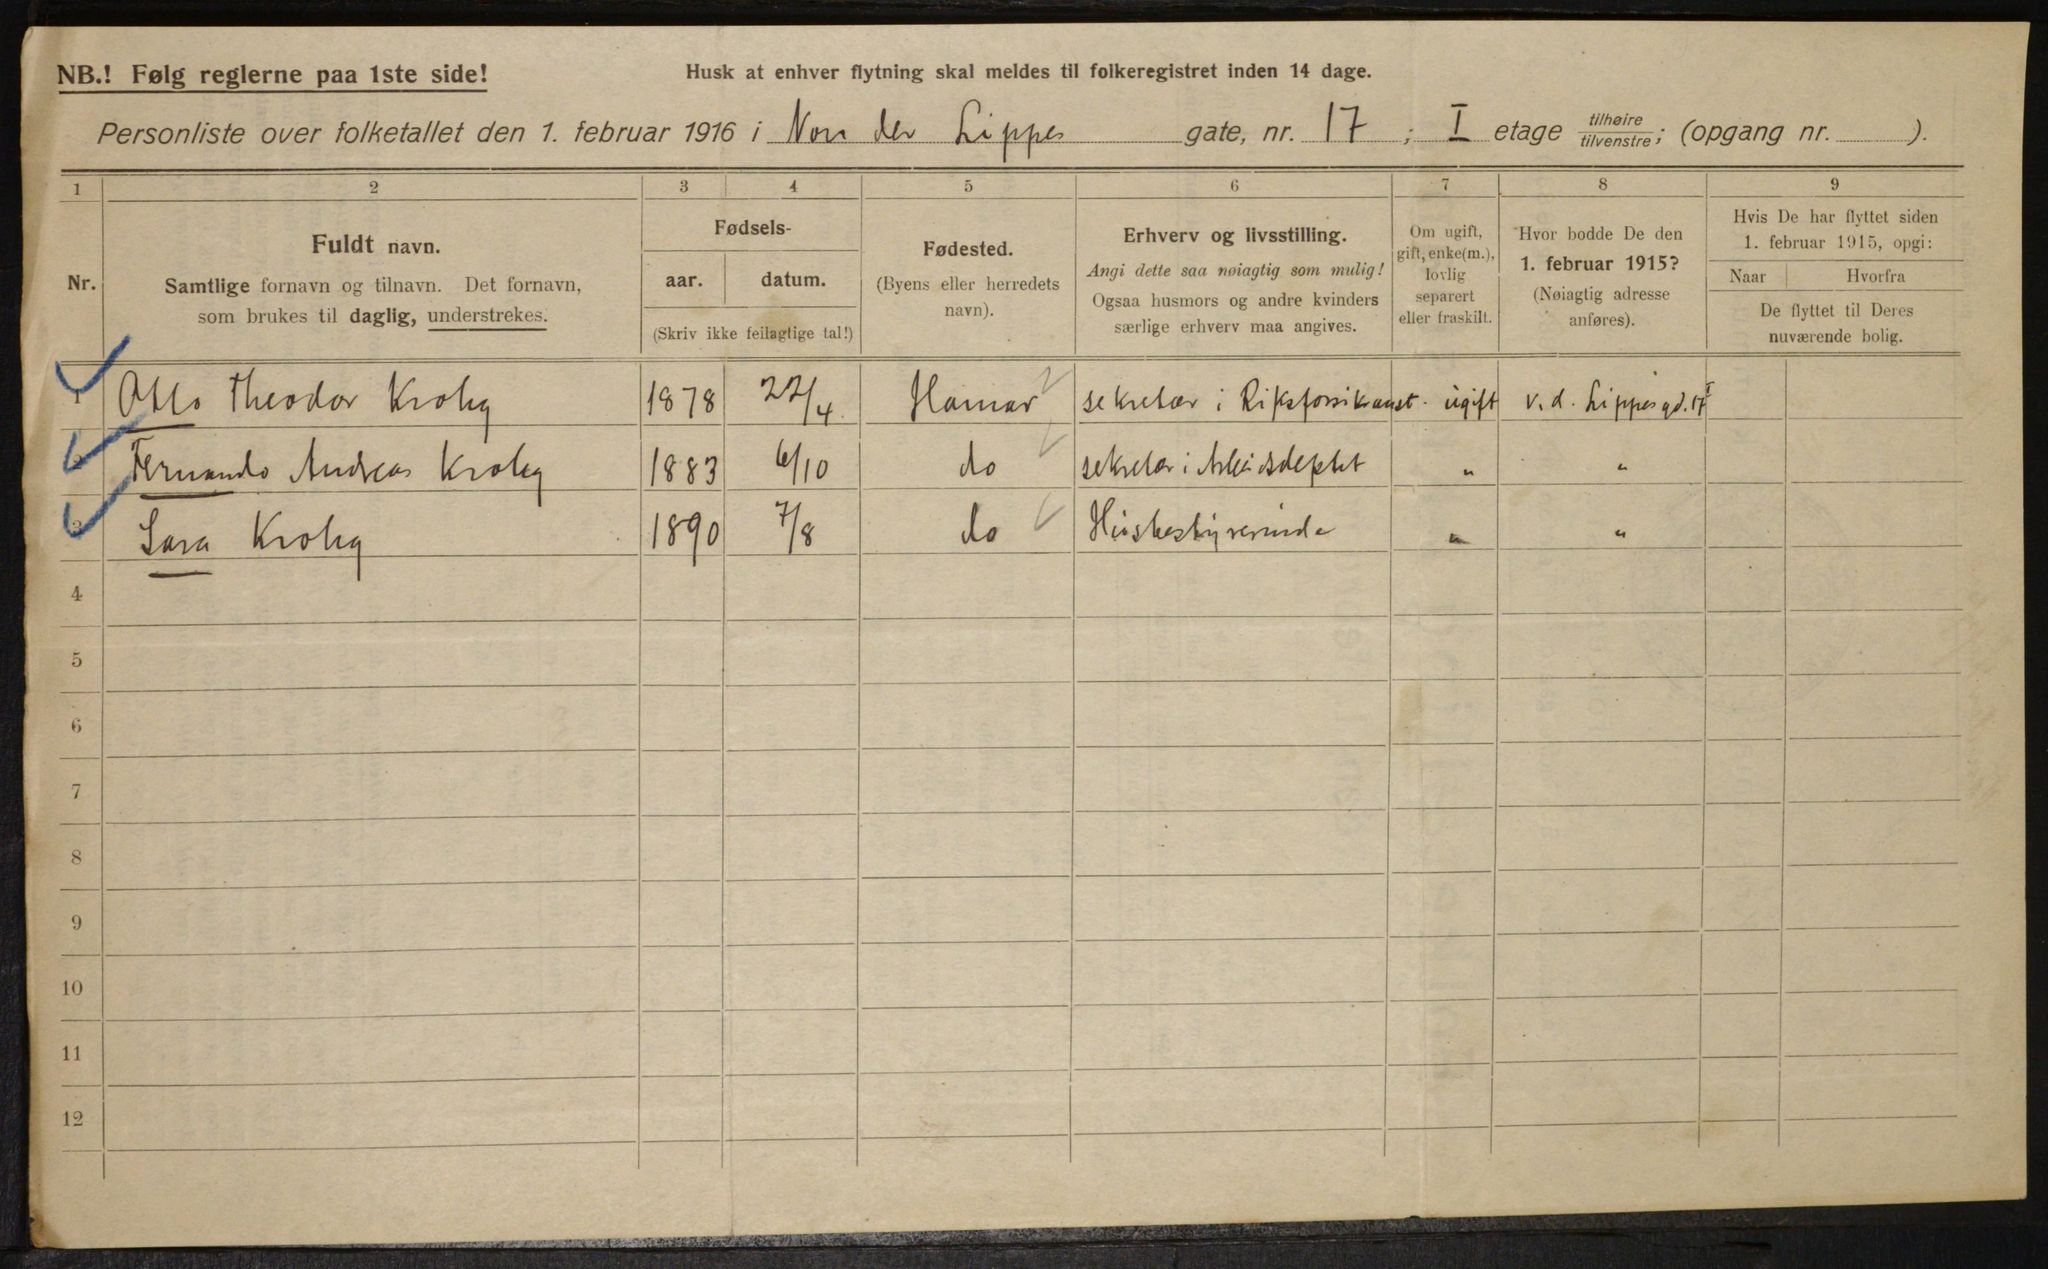 NB.! Følg reglerne paa 1ste side!
Husk at enhver flytning skal meldes til folkeregistret inden 14 dage.
Personliste over folketallet den 1. februar 1916 i Von der Lippes gate, nr. 17 ; I etage tilhøire/tilvenstre; (opgang nr. ).
1 2 3 4 5 6 7 8 9
Nr.
Fuldt navn.
Samtlige fornavn og tilnavn. Det fornavn,
som brukes til daglig, understrekes.
Fødsels-
aar. datum.
(Skriv ikke feilagtige tal!)
Fødested.
(Byens eller herredets
navn).
Erhverv og livsstilling.
Angi dette saa nøiagtig som mulig!
Ogsaa husmors og andre kvinders
særlige erhverv maa angives.
Om ugift,
gift, enke(m.),
lovlig
separert
eller fraskilt.
Hvor bodde De den
1. februar 1915?
(Nøiagtig adresse
anføres).
Hvis De har flyttet siden
1. februar 1915, opgi:
Naar Hvorfra
De flyttet til Deres
nuværende bolig.
1 Otto Theodor Krohg 1878 22/4 Hamar sekretær i Riksforsikranst. ugift v. d. Lippesgd. 17 I
2 Fernando Andreas Krohg 1883 6/10 do sekretær i Arbeidsdeptet " "
3 Sara Krohg 1890 7/8 do Husbestyrerinde " "
4
5
6
7
8
9
10
11
12